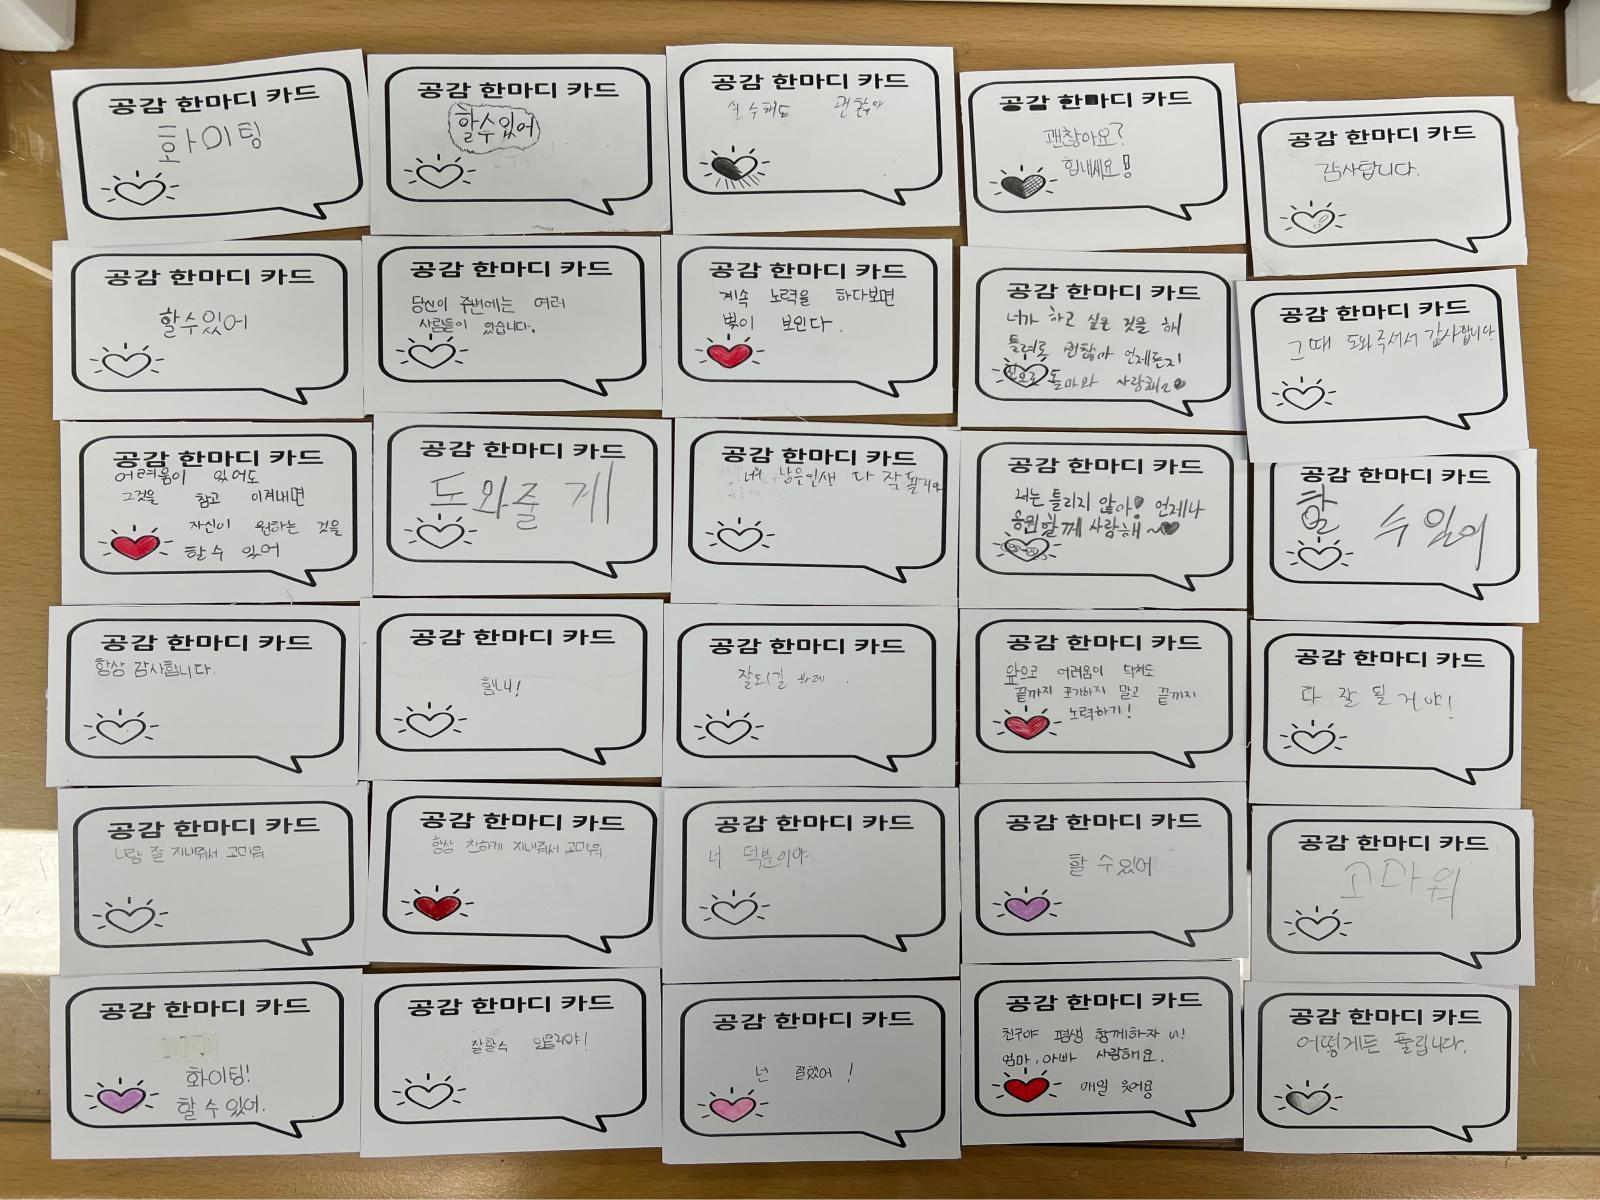 공감 한마디 카드
화이팅
공감 한마디 카드
할수있어
공감 한마디 카드
실수해도 괜찮아
공감 한마디 카드
괜찮아요?
힘내세요!
공감 한마디 카드
감사합니다.
공감 한마디 카드
할수있어
공감 한마디 카드
당신이 주변에는 여러
사람들이 있습니다.
공감 한마디 카드
계속 노력을 하다보면
빛이 보인다.
공감 한마디 카드
너가 하고 싶은 것을 해
틀려도 괜찮아 언제든지
집으로 돌아와 사랑해
공감 한마디 카드
그때 도와주셔서 감사합니다
공감 한마디 카드
어려움이 있어도
그것을 참고 이겨내면
자신이 원하는 것을
할수 있어
공감 한마디 카드
도와줄게
공감 한마디 카드
남은인생 다 잘
공감 한마디 카드
너는 틀리지 않아! 언제나
응원할께 사랑해~♥
공감 한마디 카드
할 수 있어
공감 한마디 카드
항상 감사합니다.
공감 한마디 카드
힘내!
공감 한마디 카드
잘되길 바래.
공감 한마디 카드
앞으로 어려움이 닥쳐도
끝까지 포기하지 말고 끝까지
노력하기!
공감 한마디 카드
다 잘 될 거야!
공감 한마디 카드
나랑 잘 지내줘서 고마워
공감 한마디 카드
항상 친하게 지내줘서 고마워
공감 한마디 카드
너 덕분이야
공감 한마디 카드
할 수있어
공감 한마디 카드
고마워
공감 한마디 카드
화이팅!
할 수 있어.
공감 한마디 카드
잘할수 있을거야!
공감 한마디 카드
넌 잘했어!
공감 한마디 카드
친구야 평생 함께하자
엄마, 아빠 사랑해요.
매일 웃어용
공감 한마디 카드
어떻게든 풀립니다.